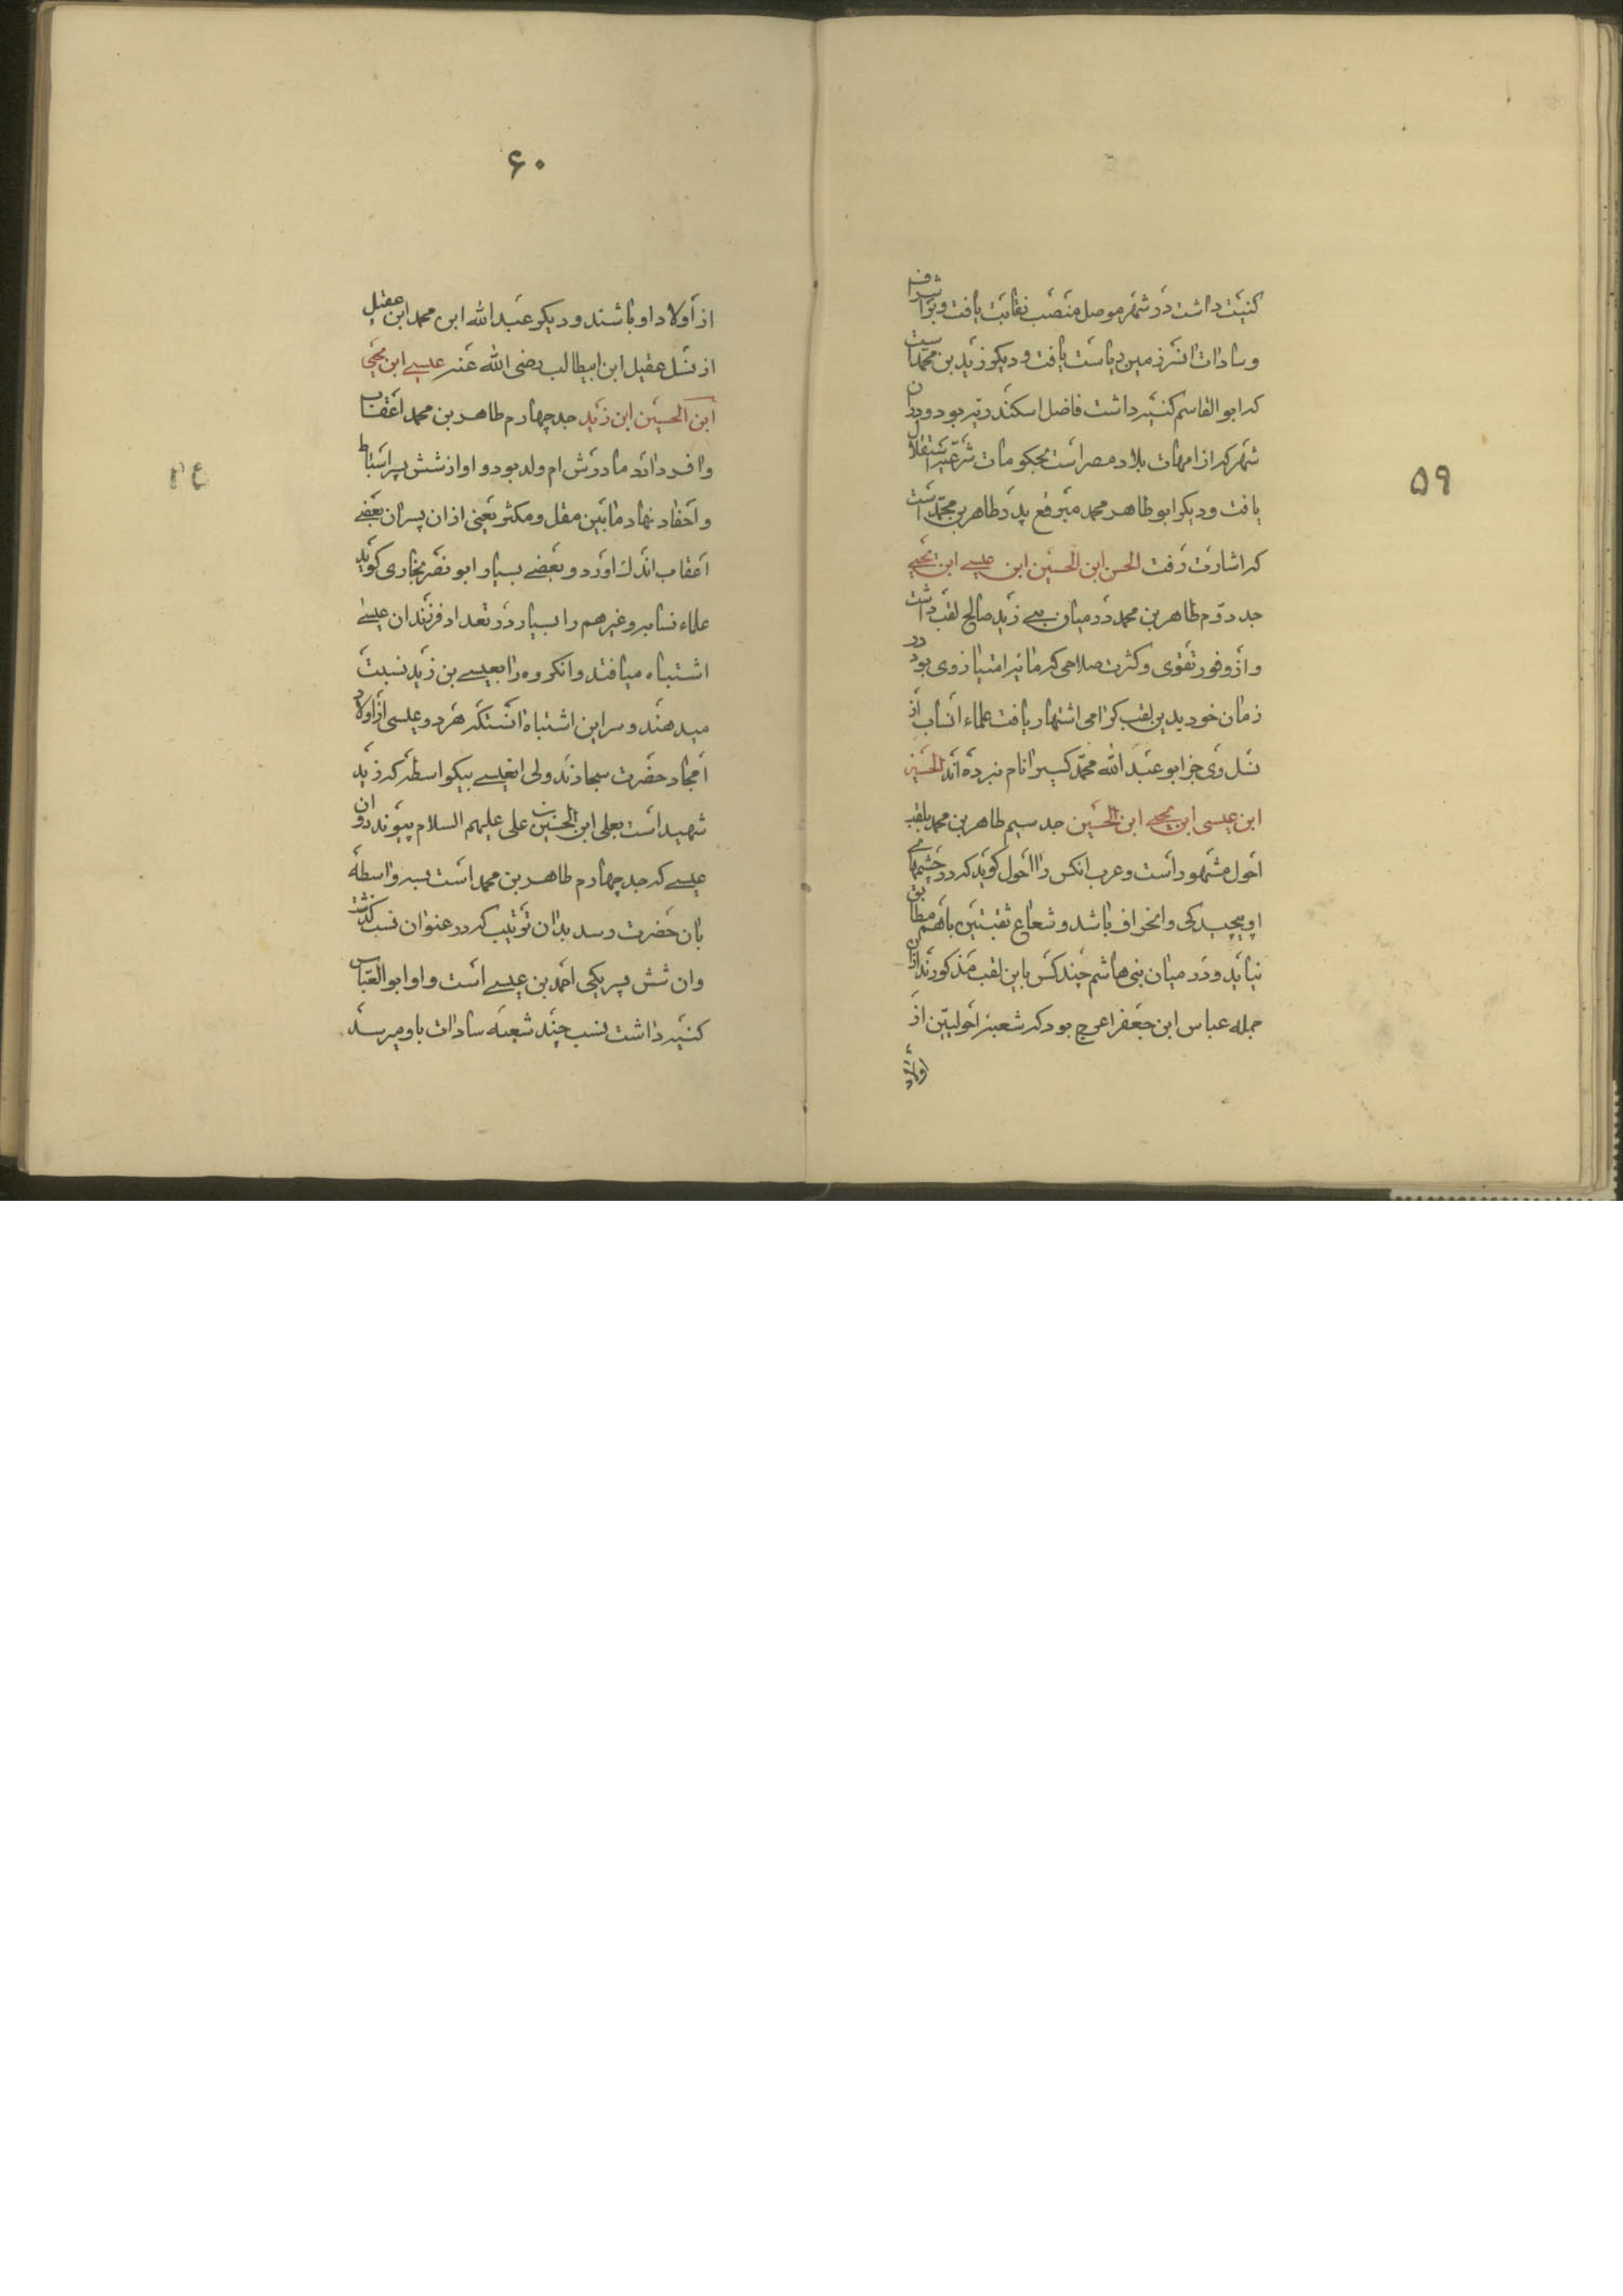 ۵۹
کنیت داشت در شهر موصل منصب نقابت یافت و بر اشراف
و سادات انسرزمین ریاست یافت و دیکر زید بن محمد است
که ابو القاسم کنیه داشت فاضل اسکندریه بود و در ان
شهر که از امهات بلاد مصر است بحکومات شرعیه استقلال
یافت و دیکر ابو طاهر محمد مبرقع پدر طاهر بن محمد است
که اشارت رفت الحسن ابن الحسین ابن عیسی ابن یحیی
جد دوم طاهر بن محمد در میان بنی زید صالح لقب داشت
و از وفور تقوی و کثرت صلاحی که مایه امتیاز وی بود در
زمان خود بدین لقب کرامی اشتهار یافت علماء انساب از
نسل وی جز ابو عبد الله محمد کسیرا نام نبرده اند الحسین
ابن عیسی ابن یحیی ابن الحسین جد سیم طاهر بن محمد بلقب
احول مشهور است و عرب انکس را احول کوید که در چشمهای
او پیچیدکی و انحراف باشد و شعاع ثقبتین باهم مطابق
نیاید و در میان بنی هاشم چند کس باین لقب مذکورند ازان
جمله عباس ابن جعفر اعرج بود که شعبه احولیین از
اولاد
۶۰
از اولاد او باشند و دیکر عبد الله ابن محمد ابن عقیل
از نسل عقیل ابن ابیطالب رضی الله عنه عیسی ابن یحیی
ابن الحسین ابن زید جد چهارم طاهر بن محمد اعقاب
وافر دارد مادرش ام ولد بود و او از شش پسر اسباط
و احفاد نهاد مابین مقل و مکثر یعنی ازان پسران بعضی
اعقاب اندک اورد و بعضی بسیار ابو نصر بخاری کوید
علماء نسابه و غیرهم را بسیار در تعداد فرزندان عیسی
اشتباه میافتد و انکروه را بعیسی بن زید نسبت
میدهند و سر این اشتباه انستکه هر دو عیسی از اولاد
امجاد حضرت سجادند ولی انعیسی بیکواسطه که زید
شهید است بعلی ابن الحسین بن علی علیهم السلام پیوندد و ان
عیسی که جد چهارم طاهر بن محمد است بسه واسطه
بان حضرت رسد بدان ترتیب که در عنوان نسب کذشت
وان شش پسر یکی احمد بن عیسی است و او ابو العباس
کنیه داشت نسب چند شعبه سادات باو میرسد